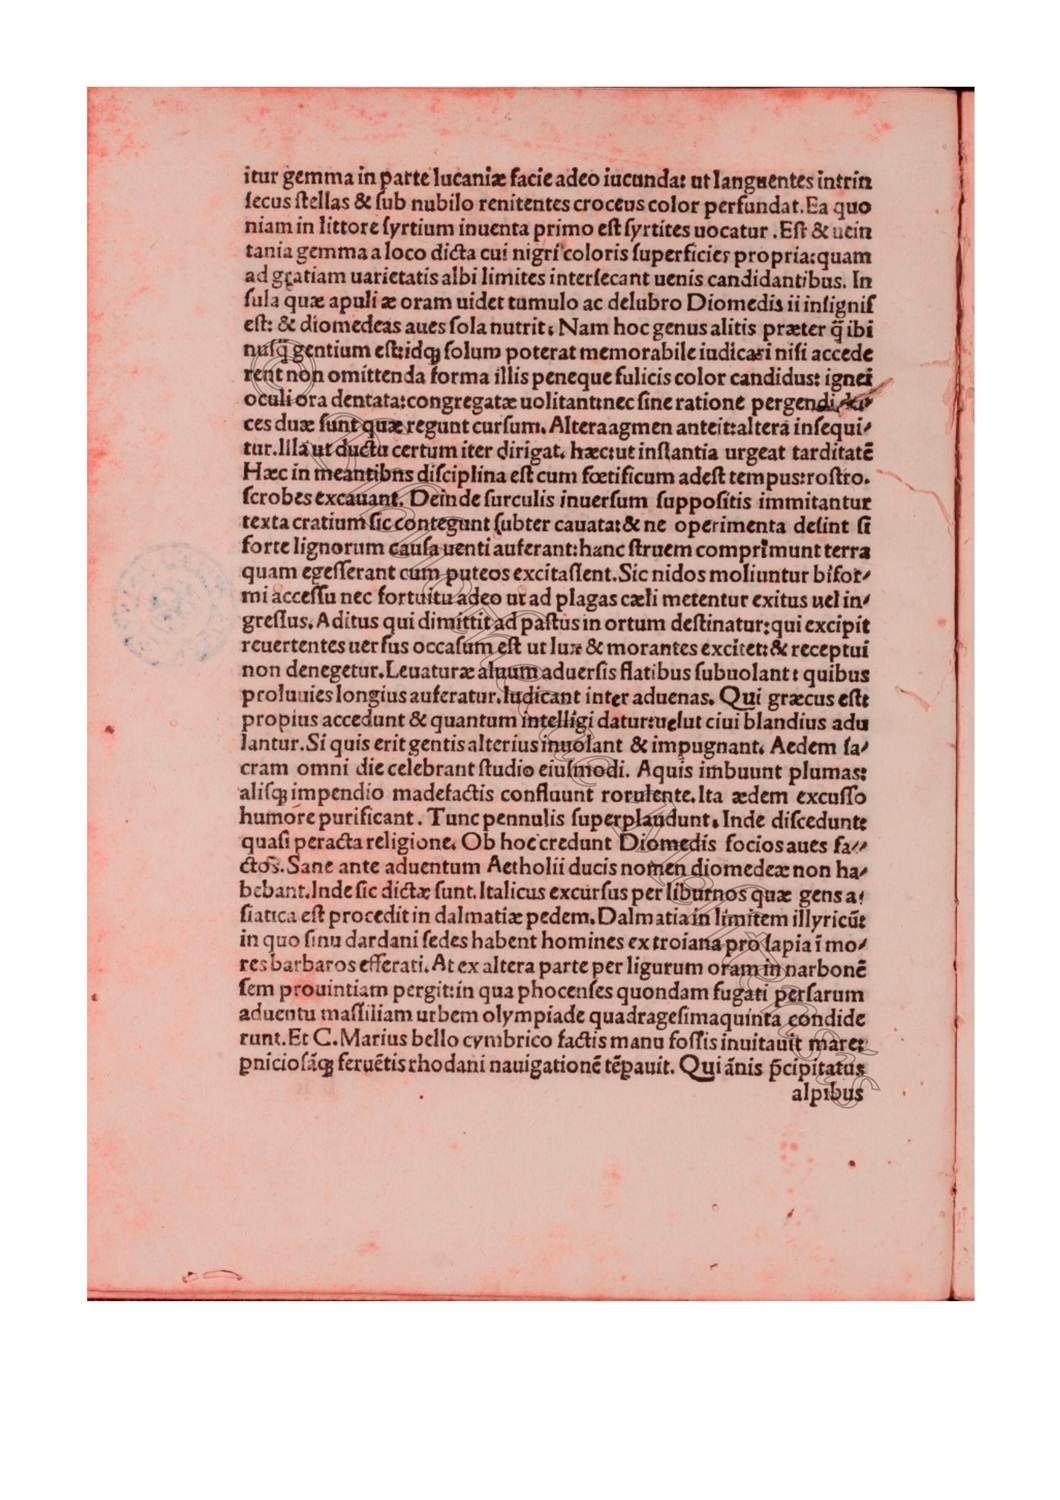 itur gemma in parte lucaniæ facie adeo iucunda: ut languentes intrin
ſecus ſtellas & ſub nubilo renitentes croceus color perfundat. Ea quo
niam in littore ſyrtium inuenta primo eſt ſyrtites uocatur . Eſt & uein
tania gemma a loco dicta cui nigri coloris ſuperficies propria: quam
ad gratiam uarietatis albi limites interſecant uenis candidantibus. In
ſula quæ apuliæ oram uidet tumulo ac delubro Diomedis ii inſignis
eſt: & diomedeas aues ſola nutrit: Nam hoc genus alitis præter q̃ ibi
nuſq̃ gentium eſt: idq; ſolum poterat memorabile iudicari niſi accede
rent non omittenda forma illis peneque fulicis color candidus: ignei
oculi ora dentata: congregatæ uolitant: nec ſine ratione pergendi du⸗
ces duæ ſunt quæ regunt curſum. Altera agmen anteit: altera inſequi⸗
tur. Illa ut ductu certum iter dirigat. hæc: ut inſtantia urgeat tarditatē
Hæc in meantibus diſciplina eſt cum fœtificum adeſt tempus: roſtro.
ſcrobes excauant. Deinde ſurculis inuerſum ſuppoſitis immitantur
texta cratium ſic contegunt ſubter cauata: & ne operimenta deſint ſi
forte lignorum cauſa uenti auferant: hanc ſtruem comprimunt terra
quam egeſſerant cum puteos excitaſſent. Sic nidos moliuntur bifor⸗
mi acceſſu nec fortuitu adeo ut ad plagas cæli metentur exitus uel in⸗
greſſus. Aditus qui dimittit ad paſtus in ortum deſtinatur: qui excipit
reuertentes uerſus occaſum eſt ut lux & morantes excitet: & receptui
non denegetur. Leuaturæ aluum aduerſis flatibus ſubuolant: quibus
proluuies longius auferatur. Iudicant inter aduenas. Qui græcus eſte
propius accedunt & quantum intelligi datur: uelut ciui blandius adu
lantur. Si quis erit gentis alterius inuolant & impugnant. Aedem ſa⸗
cram omni die celebrant ſtudio eiuſmodi. Aquis imbuunt plumas:
aliſq; impendio madefactis confluunt rorulente. Ita ædem excuſſo
humore purificant . Tunc pennulis ſuperplaudunt. Inde diſcedunt
quaſi peracta religione. Ob hoc credunt Diomedis ſocios aues fa⸗
ctos. Sane ante aduentum Aetholii ducis nomen diomedeæ non ha⸗
bebant. Inde ſic dictæ ſunt. Italicus excurſus per liburnos quæ gens a⸗
ſiatica eſt procedit in dalmatiæ pedem. Dalmatia in limitem illyricū:
in quo ſinu dardani ſedes habent homines ex troiana proſapia ī mo⸗
res barbaros efferati. At ex altera parte per ligurum oram in narbonē
ſem prouintiam pergit: in qua phocenſes quondam fugati perſarum
aduentu maſſiliam urbem olympiade quadrageſimaquinta condide
runt. Et C. Marius bello cymbrico factis manu foſſis inuitauit mare:
ꝑnicioſāq; feruētis rhodani nauigationē tēpauit. Qui ānis p̄cipitatus
alpibus